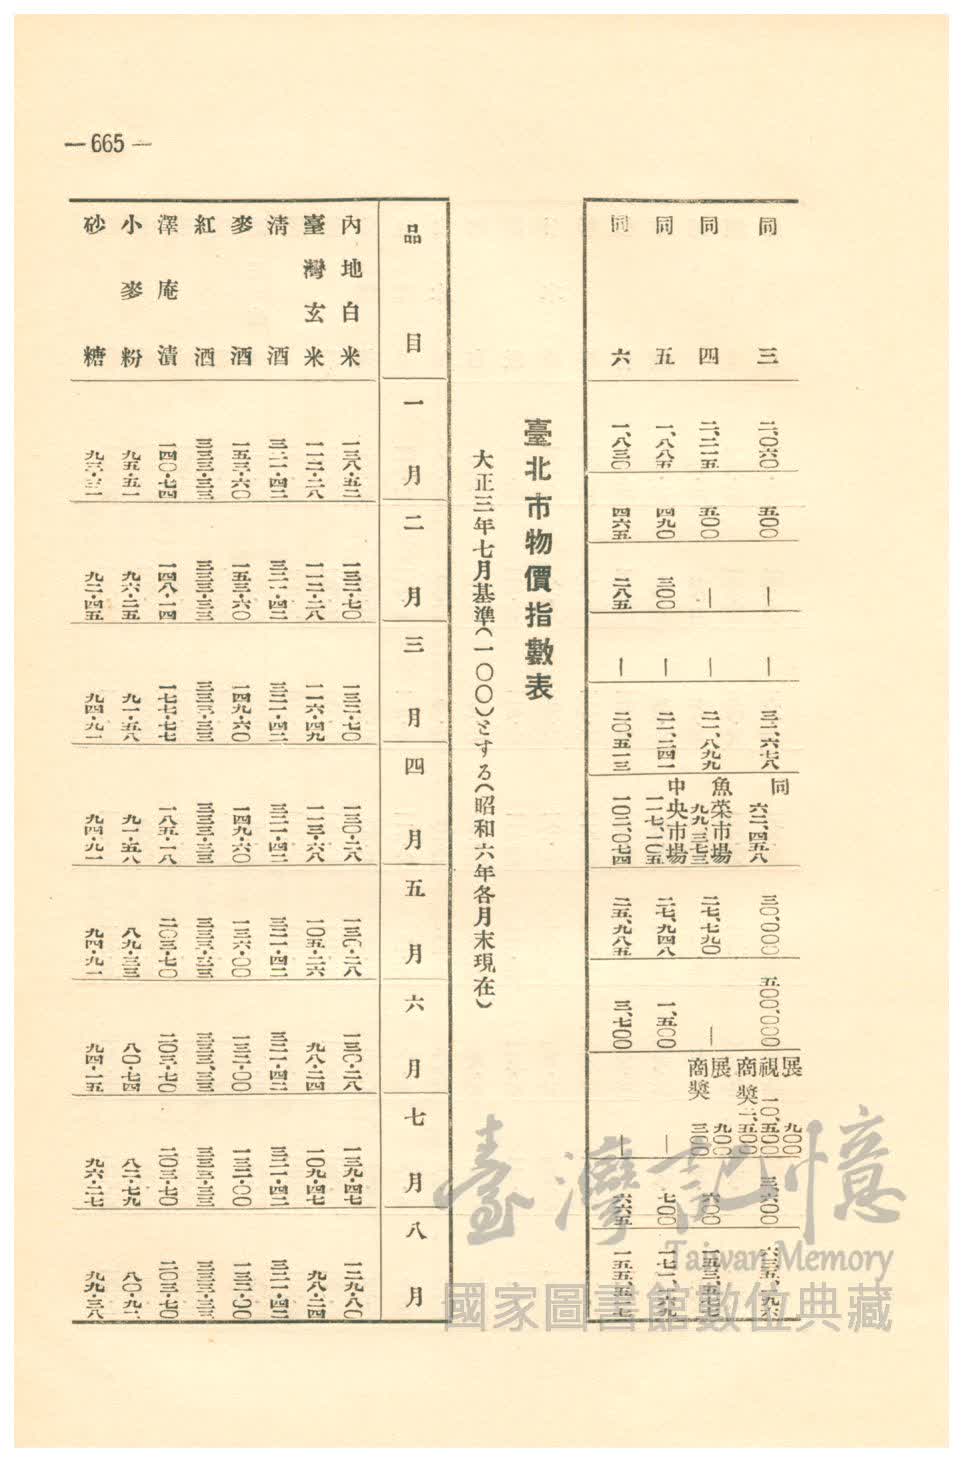 —665—
同三 二、〇六〇 五〇〇 — — 三二、六七八 同 六二、四五八 三〇、〇〇〇 五〇〇、〇〇〇 展 九〇〇 視 一〇、五〇〇 商獎 二、五〇〇 三、六〇〇
同四 二、二一五 五〇〇 — — 二一、八九九 魚菜市場 九九、三七三 二七、七九〇 — 展 九〇〇 商獎 三〇〇 六〇〇
同五 一、八八五 四九〇 三〇〇 — 二二、二四一 中央市場 一一七、一〇五 二七、九四八 一、五〇〇 — 七〇〇
同六 一、八三〇 四六五 二八五 — 二〇、五一三 一〇二、〇七四 二五、九八五 三、七〇〇 — 六六五 一五五、五一七
臺北市物價指數表
大正三年七月基準(一〇〇)とする(昭和六年各月末現在)
品目 一月 二月 三月 四月 五月 六月 七月 八月
內地白米 一三八・五二 一三二・七〇 一三二・七〇 一三〇・二八 一三〇・二八 一三〇・二八 一三九・四七 一二九・八〇
臺灣玄米 一一二・二八 一一二・二八 一一六・四九 一一三・六八 一〇五・二六 九八・二四 一〇九・四七 九八・二四
清酒 三二一・四二 三二一・四二 三二一・四二 三二一・四二 三二一・四二 三二一・四二 三二一・四二 三二一・四二
麥酒 一五三・六〇 一五三・六〇 一四九・六〇 一四九・六〇 一三六・〇〇 一三二・〇〇 一三二・〇〇 一三二・〇〇
紅酒 三三三・三三 三三三・三三 三三三・三三 三三三・三三 三三三・三三 三三三・三三 三三三・三三 三三三・三三
澤庵漬 一四〇・七四 一四八・一四 一七七・七七 一八五・一八 二〇三・七〇 二〇三・七〇 二〇三・七〇 二〇三・七〇
小麥粉 九五・五一 九六・二五 九一・五八 九一・五八 八九・三三 八〇・七四 八二・七九 八〇・九一
砂糖 九二・四五 九四・九一 九四・九一 九四・九一 九四・一五 九六・二七 九九・三八
臺灣記憶
Taiwan Memory
國家圖書館數位典藏